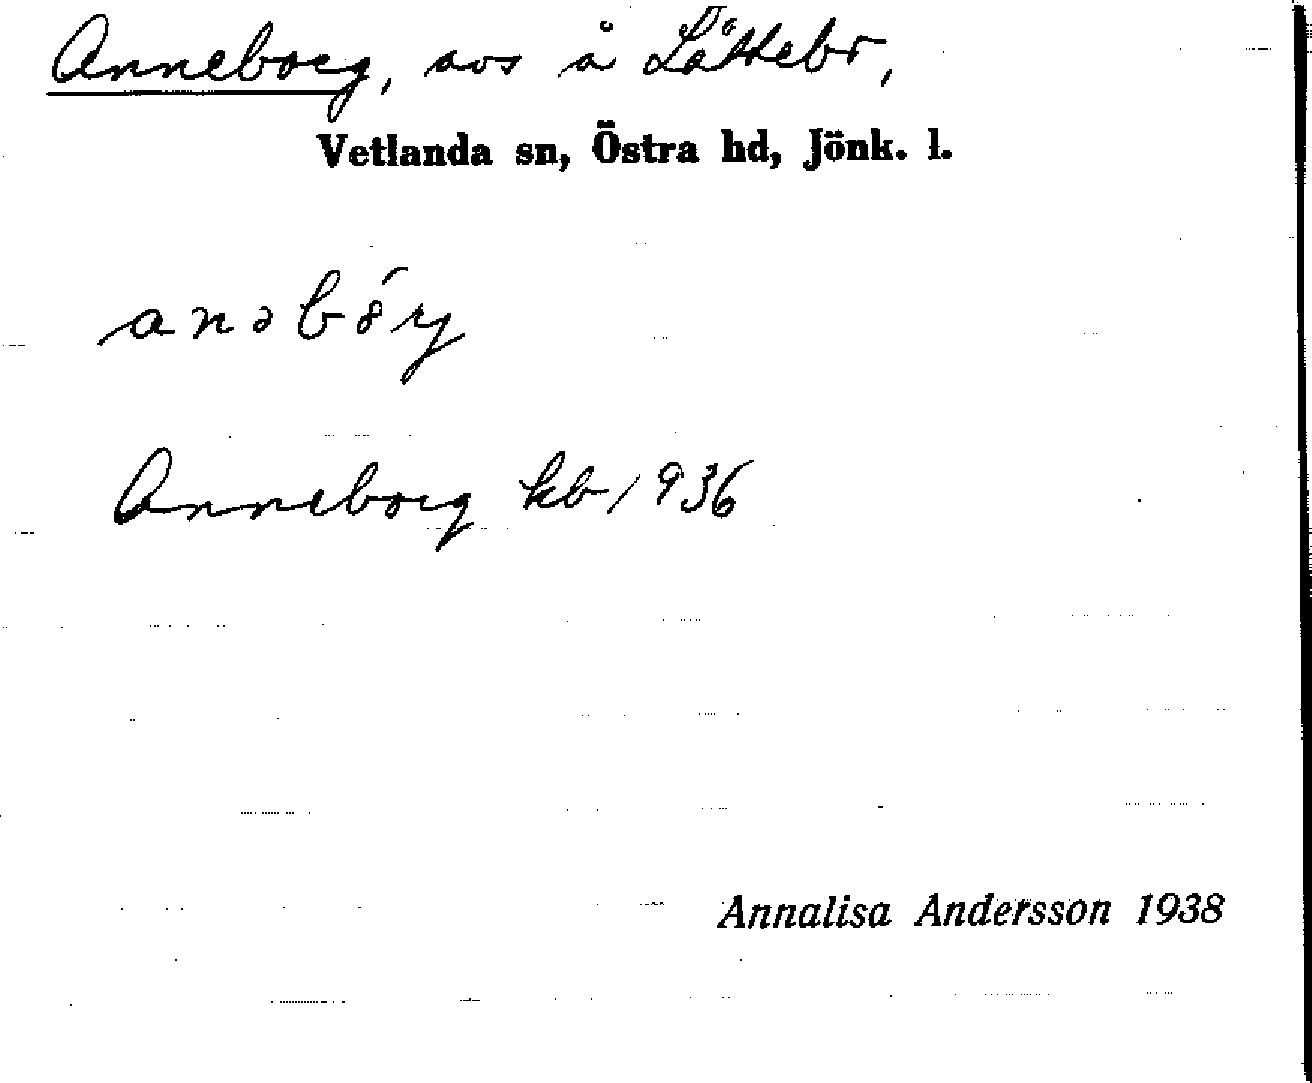 Anneborg, avs å Låttebr,
Vetlanda sn, Östra hd, Jönk. l.
Anneborg kb 1936
Annalisa Andersson 1938